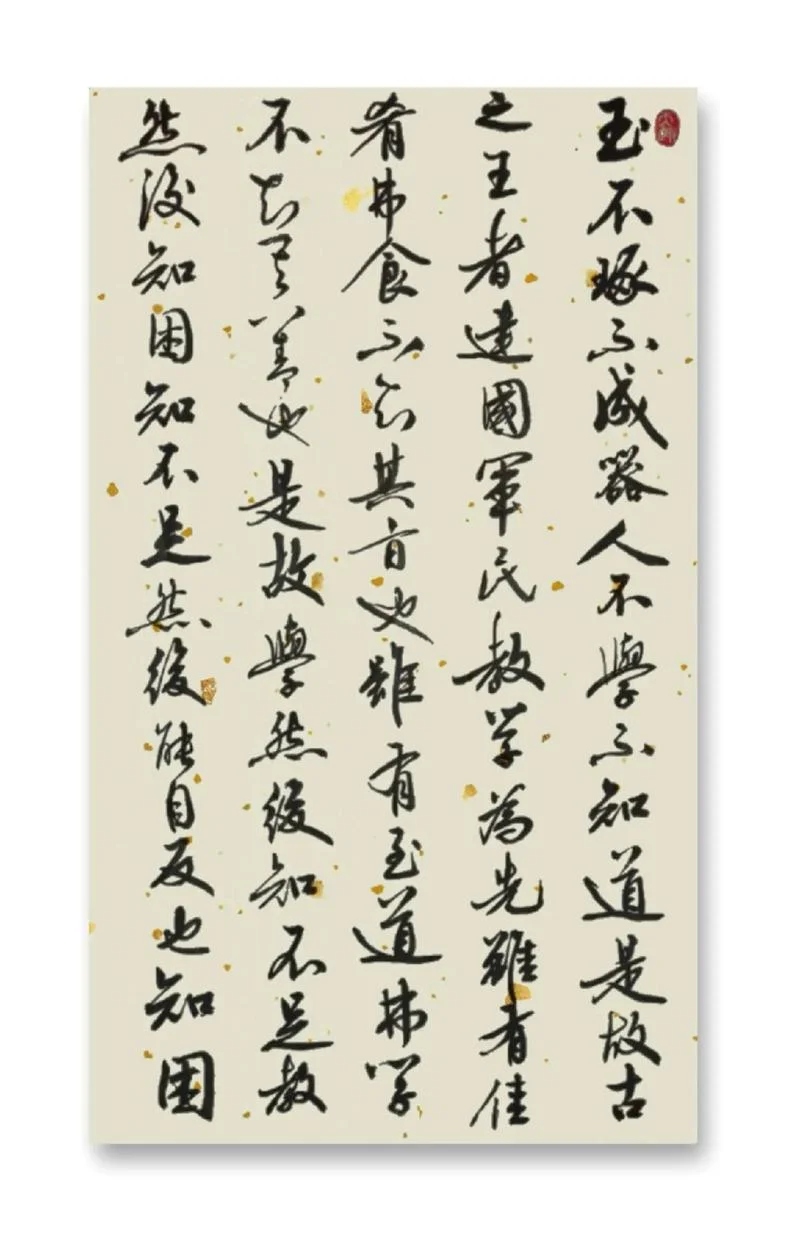 玉不琢不成器人不學不知道是故古
之王者建國軍民教学為先雖有佳
肴弗食不知其旨也雖有至道弗学
不知其善也是故學然後知不足教
然後知困知不足然後能自反也知困